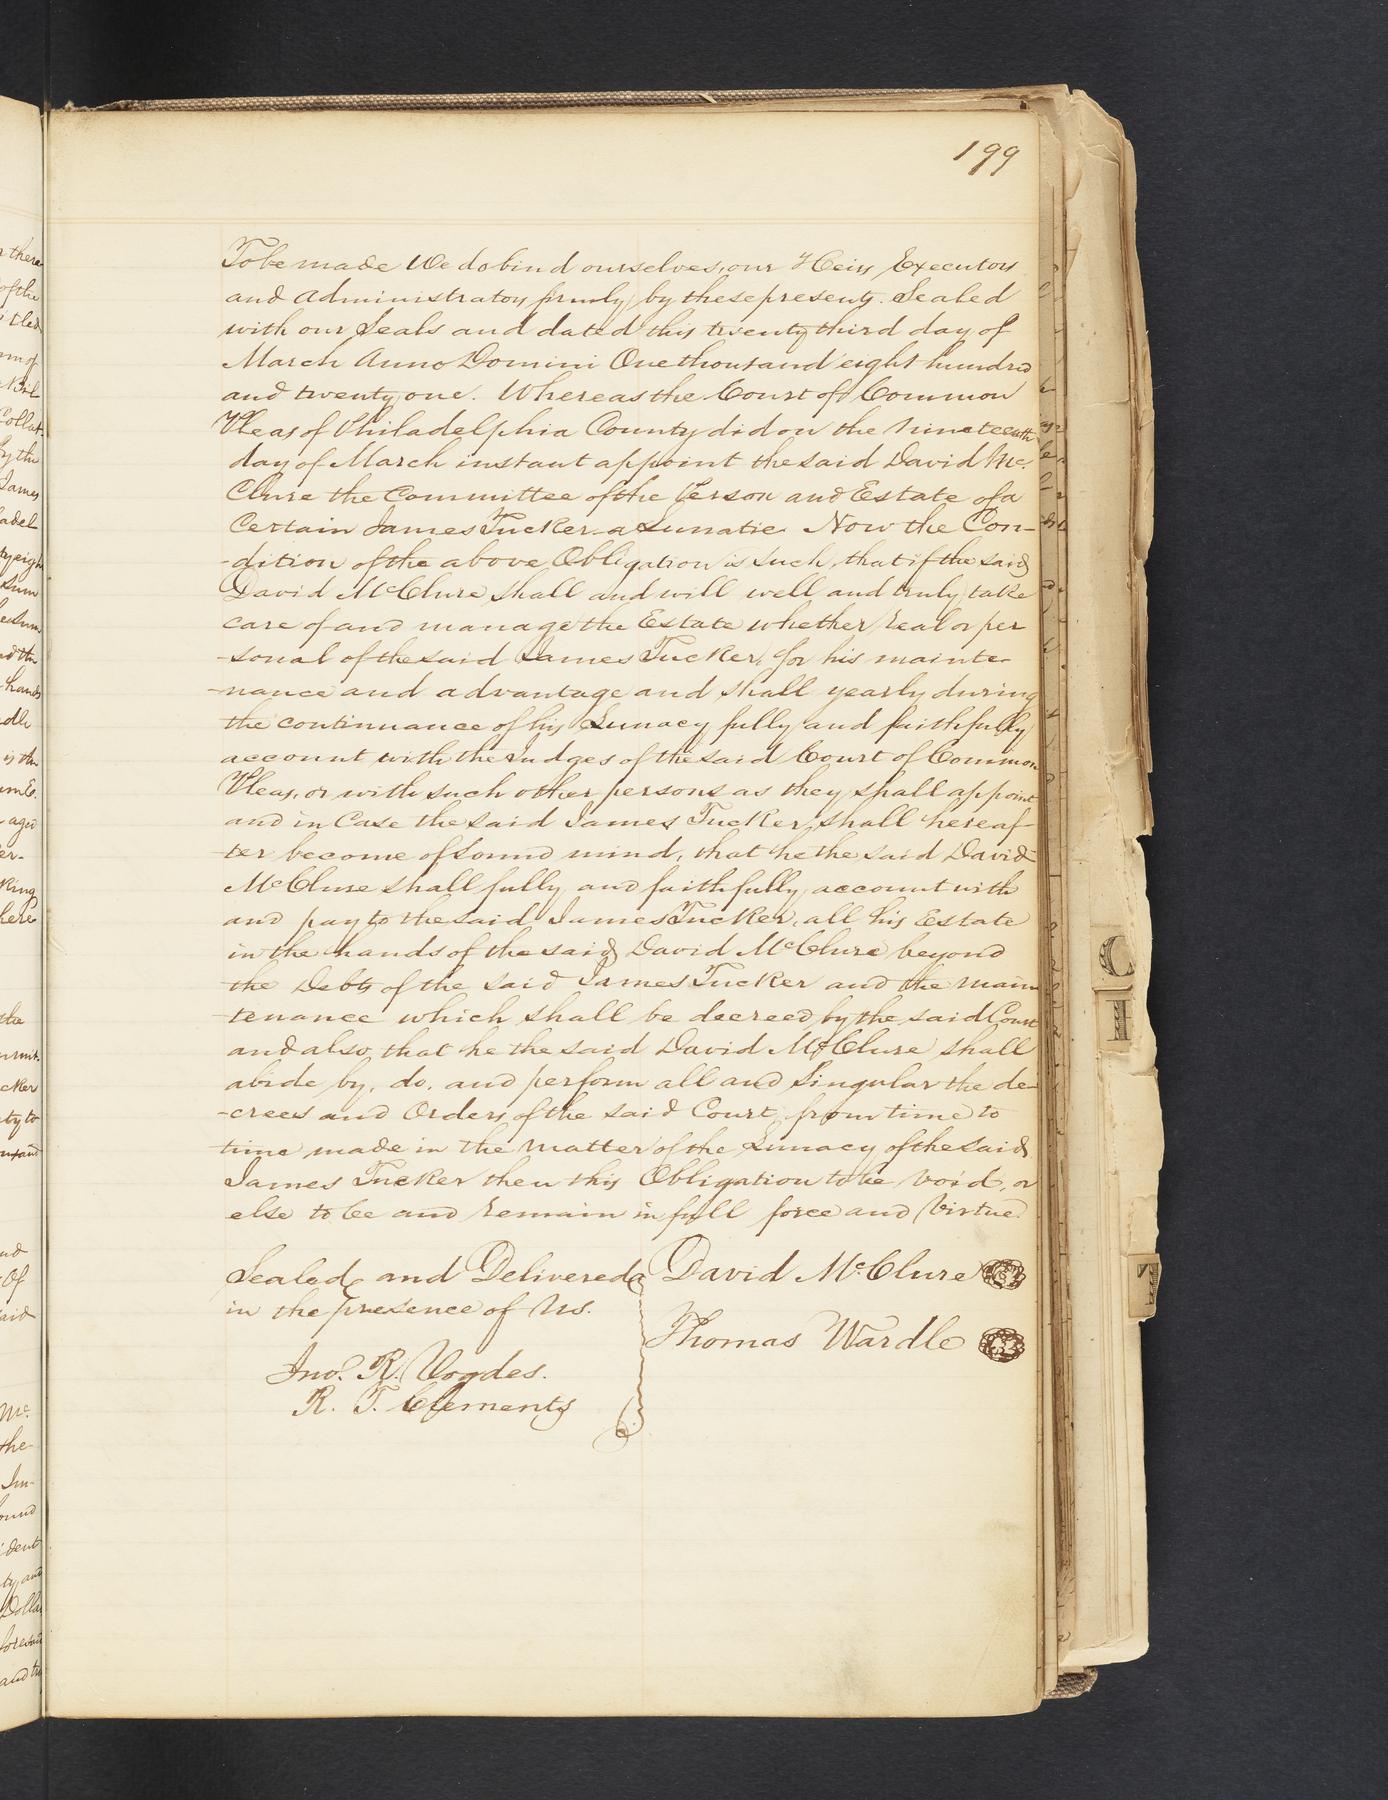 199
To be made We do bind ourselves, our Heirs Executors
and Administrators firmly by these presents. Sealed
with our Seals and dated this twenty third day of
March Anno Domini One thousand eight hundred
and twenty one. Whereas the Court of Common
Pleas of Philadelphia County did on the nineteenth
day of March instant appoint the said David Mc.
Clure the Committee of the Person and Estate of a
Certain James Tucker a Lunatic Now the Con-
-dition of the above Obligation is such, that if the said
David McClure shall and will well and truly take
care of and manage the Estate whether real or per
-sonal of the said James Tucker, for his mainte-
-nance and advantage and shall yearly during
the continuance of his Lunacy fully and faithfully
account with the Judges of the said Court of Common
Pleas, or with such other persons as they shall appoint
and in Case the said James Tucker, shall hereaf-
-ter become of sound mind, that he the said David
McClure shall fully and faithfully account with
and pay to the said James Tucker, all his Estate
in the hands of the said David McClure beyond
the Debts of the said James Tucker and the main
-tenance which shall be decreed by the said Court
and also that he the said David McClure shall
abide by, do, and perform all and Singular the de-
-crees and Orders of the said Court from time to
time made in the matter of the Lunacy of the said
James Tucker then this Obligation to be void, or
else to be and remain in full force and Virtue.
Sealed and Delivered David McClure
in the presence of Us.
Thomas Wardle
Jno. R. Vogdes.
R. T. Clements